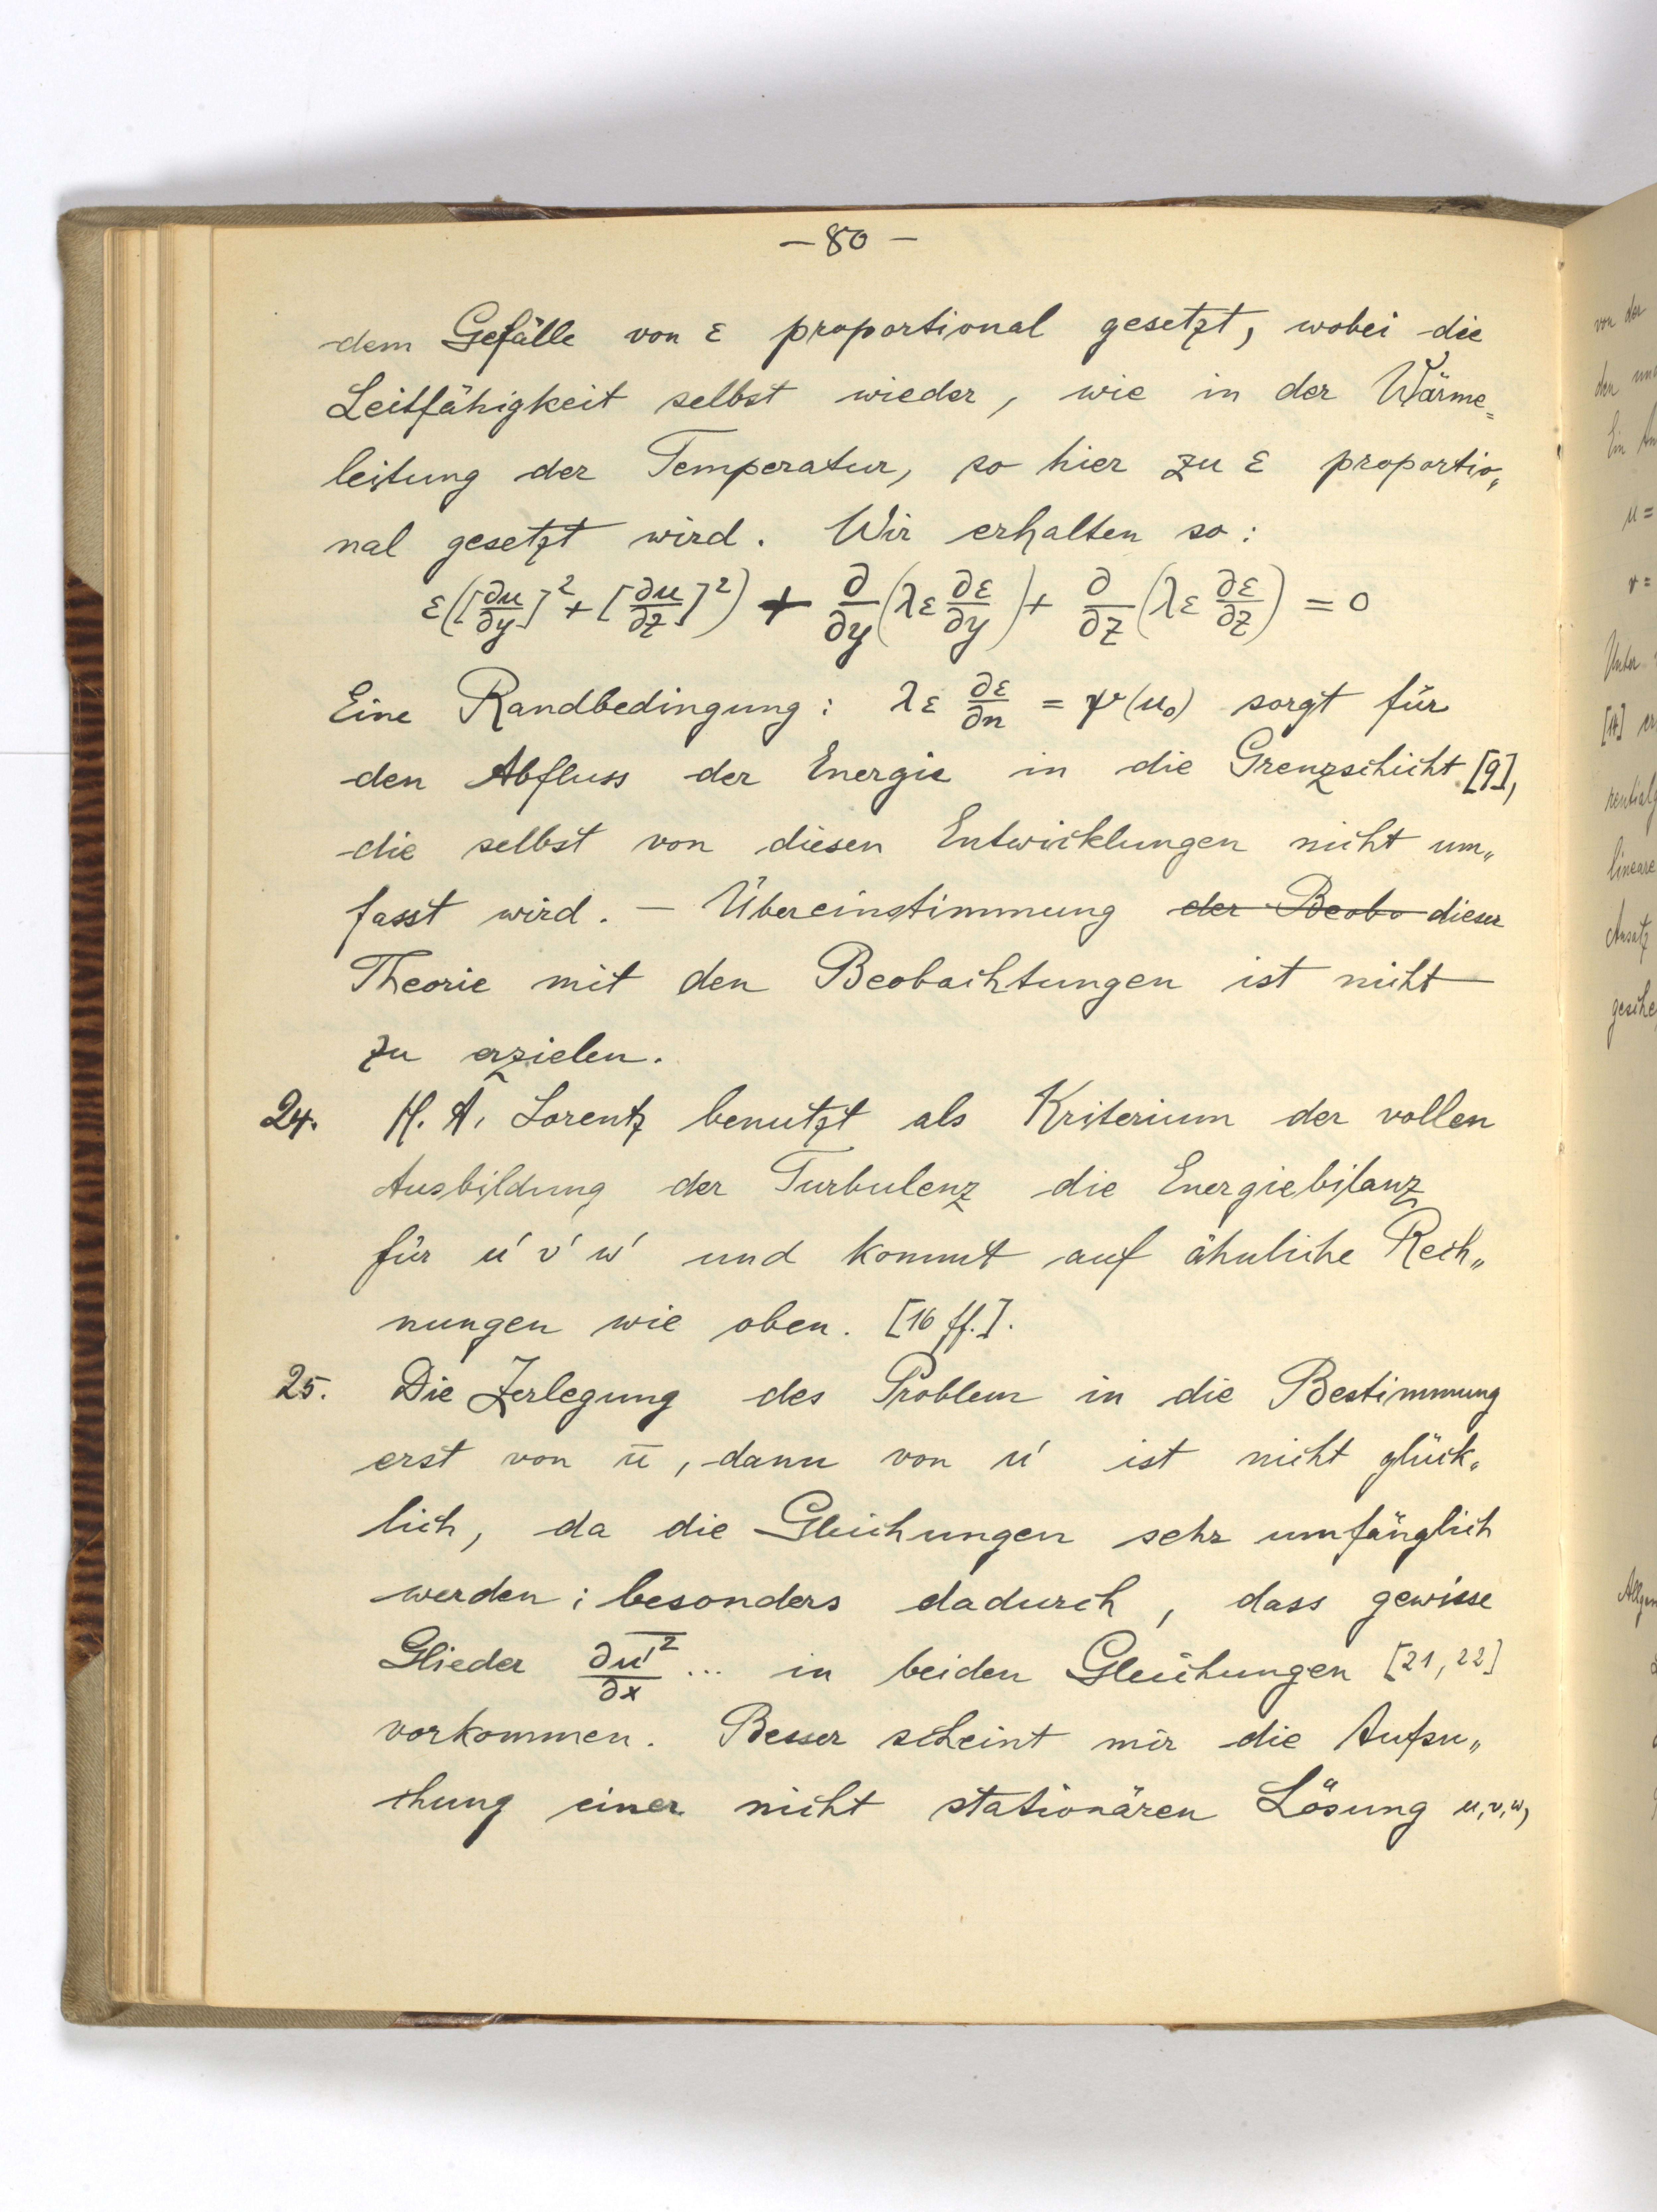 – 80 –
dem Gefälle von ε proportional gesetzt, wobei die
Leitfähigkeit selbst wieder, wie in der Wärme=
leitung der Temperatur, so hier zu ε proportio„
nal gesetzt wird. Wir erhalten so:
ε([∂u/∂y]² + [∂u/∂z]²) + ∂/∂y (λε ∂ε/∂y) + ∂/∂z (λε ∂ε/∂z) = 0
Eine Randbedingung: λε ∂ε/∂n = ψ(u₀) sorgt für
den Abfluss der Energie in die Grenzschicht [9],
die selbst von diesen Entwicklungen nicht um„
fasst wird. – Übereinstimmung der Beobo dieser
Theorie mit den Beobachtungen ist nicht
zu erzielen.
24. H. A. Lorentz benutzt als Kriterium der vollen
Ausbildung der Turbulenz die Energiebilanz
für u' v' w' und kommt auf ähnliche Rech„
nungen wie oben. [16 ff.].
25. Die Zerlegung des Problem in die Bestimmung
erst von ū, dann von u' ist nicht glück„
lich, da die Gleichungen sehr umfänglich
werden; besonders dadurch, dass gewisse
Glieder ∂u̅'̅²/∂x ... in beiden Gleichungen [21, 22]
vorkommen. Besser scheint mir die Aufsu„
chung einer nicht stationären Lösung u, v, w,
von der
den
Ein
u =
v =
Unter
[14]
lineare
Ansatz